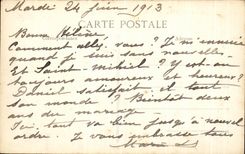 Mardi 24 juin 1913
CARTE POSTALE
Bonne Hélène
Comment allez vous? Je m'ennuie
quand je suis sans nouvelles
Et Saint-Mihiel? Y est-on
toujours amoureux et heureux?
Daniel satisfait il tout
son monde? Bientôt deux
ans de mariage
Ici, tout va bien jusqu'à nouvel
ordre. Je vous embrasse tous